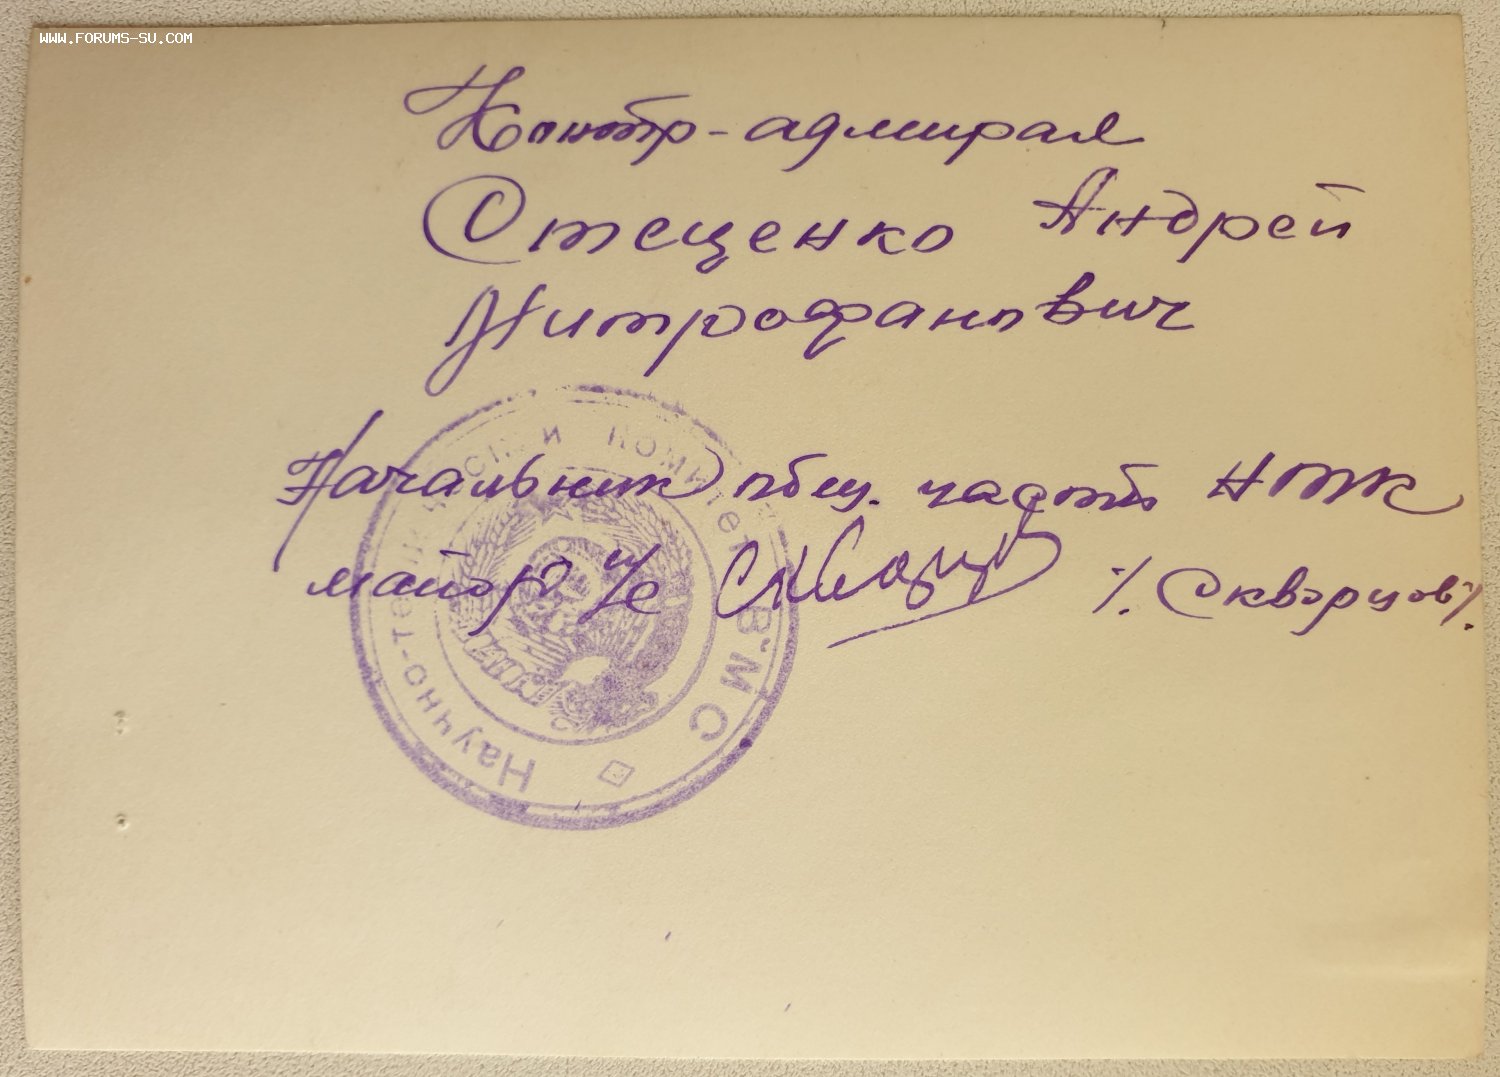 WWW.FORUMS-SU.COM
Контр-адмирал
Стеценко Андрей
Митрофанович
Начальник общ. части НТК
майор и/с Скворцов /. Скворцов /.
Научно-технический комитет ВМС